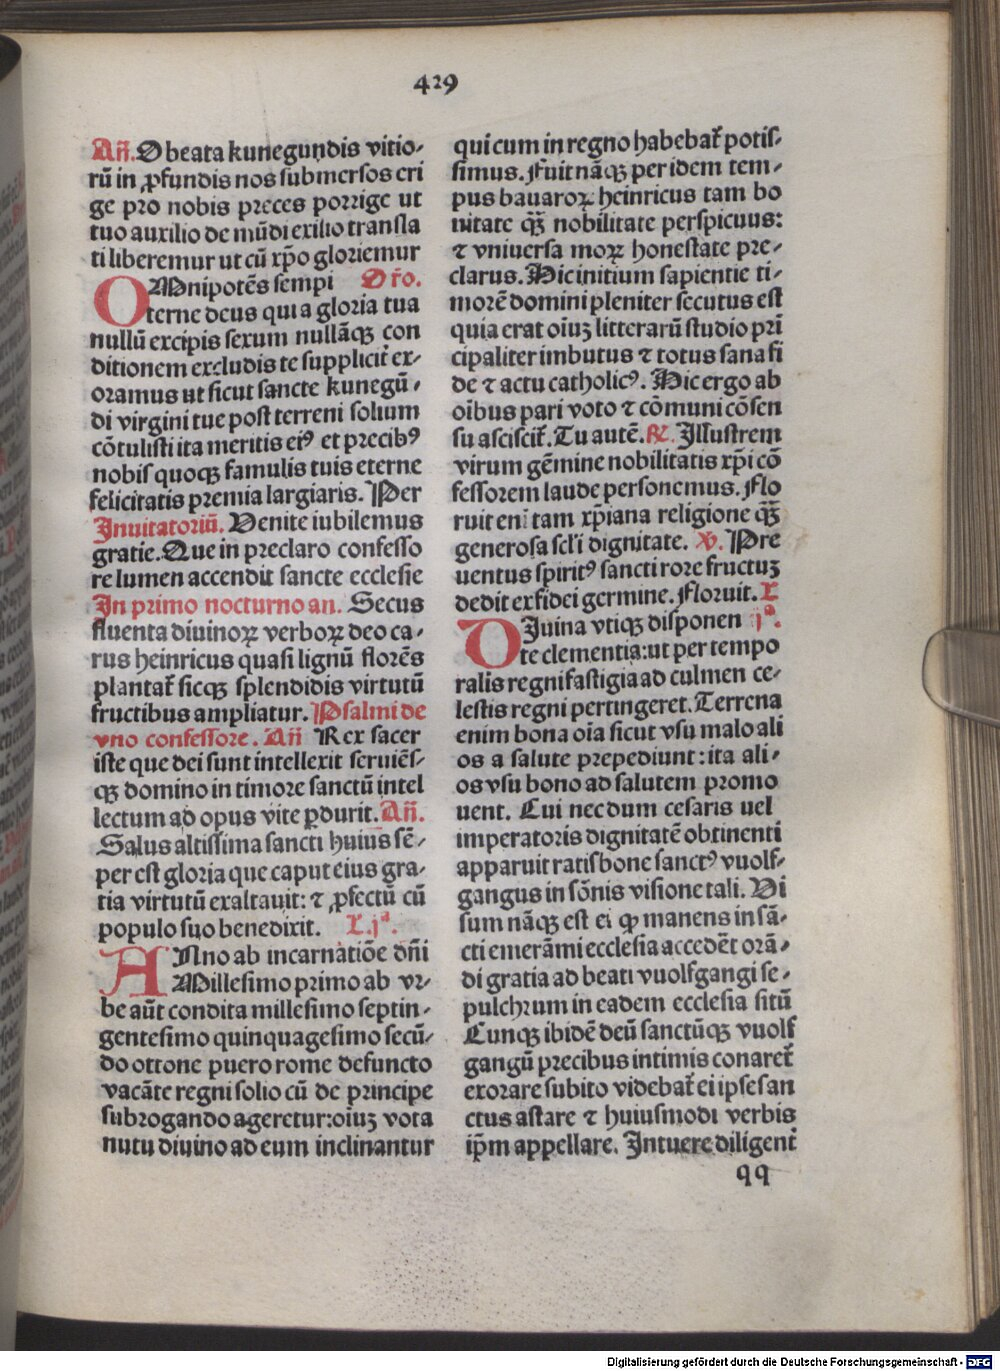 429
Añ. O beata kunegundis vitio-
rū in ꝓfundis nos submersos eri
ge pro nobis preces porrige ut
tuo auxilio de mūdi exilio transla
ti liberemur ut cū xp̄o gloriemur
OMnipotēs sempi Or̄o.
terne deus qui a gloria tua
nullū excipis sexum nullāqꝫ con
ditionem excludis te supplicit᷑ ex-
oramus ut sicut sancte kunegū-
di virgini tue post terreni solium
cōtulisti ita meritis eiꝰ et precibꝰ
nobis quoqꝫ famulis tuis eterne
felicitatis premia largiaris. Per
Inuitatoriū. Venite iubilemus
gratie. Que in preclaro confesso
re lumen accendit sancte ecclesie
In primo nocturno an. Secus
fluenta diuinoꝝ verboꝝ deo ca-
rus heinricus quasi lignū florēs
plantat᷑ sicqꝫ splendidis virtutū
fructibus ampliatur. Psalmi de
vno confessore. Añ Rex sacer
iste que dei sunt intellexit seruiēs-
qꝫ domino in timore sanctū intel
lectum ad opus vite ꝑdurit. Añ.
Salus altissima sancti huius sē-
per est gloria que caput eius gra-
tia virtutū exaltauit: ⁊ ꝓfectū cū
populo suo benedixit. L. jª.
ANno ab incarnatiōe dñi
Millesimo primo ab vr-
be aūt condita millesimo septin-
gentesimo quinquagesimo secū-
do ottone puero rome defuncto
vacāte regni solio cū de principe
subrogando ageretur: oīuꝫ vota
nutu diuino ad eum inclinantur
qui cum in regno habebat᷑ potis-
simus. Fuit nāqꝫ per idem tem-
pus bauaroꝝ heinricus tam bo
nitate qꝫ̄ nobilitate perspicuus:
⁊ vniuersa moꝝ honestate pre-
clarus. Hic initium sapientie ti-
morē domini pleniter secutus est
quia erat oīuꝫ litterarū studio pri
cipaliter imbutus ⁊ totus sana fi
de ⁊ actu catholicꝰ. Hic ergo ab
oībus pari voto ⁊ cōmuni cōsen
su asciscit᷑. Tu autē. ℟. Illustrem
virum gēmine nobilitatis xp̄i cō
fessorem laude personemus. Flo
ruit eni tam xp̄iana religione qꝫ̄
generosa scl̄i dignitate. ℣. Pre
uentus spiritꝰ sancti rore fructuꝫ
dedit ex fidei germine. Floruit. L
DIuina vtiqꝫ disponen jª.
te clementia: ut per tempo
ralis regni fastigia ad culmen ce-
lestis regni pertingeret. Terrena
enim bona oīa sicut vsu malo ali
os a salute prepediunt: ita ali-
os vsu bono ad salutem promo
uent. Cui necdum cesaris uel
imperatoris dignitatē obtinenti
apparuit ratisbone sanctꝰ vuolf-
gangus in sōnis visione tali. Vi
sum nāqꝫ est ei ꝙ manens in sā-
cti emerāmi ecclesia accedēt orā-
di gratia ad beati vuolfgangi se-
pulchrum in eadem ecclesia sitū
Cunqꝫ ibidē deū sanctūqꝫ vuolf
gangū precibus intimis conaret᷑
exorare subito videbat᷑ ei ipse san
ctus astare ⁊ huiusmodi verbis
ip̄m appellare. Intuere diligent᷑
qq
Digitalisierung gefördert durch die Deutsche Forschungsgemeinschaft - DFG